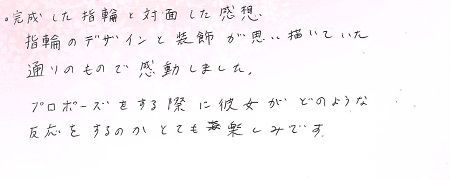 。完成した指輪と対面した感想.
指輪のデザインと装飾が思い描いていた
通りのもので感動しました。
プロポーズをする際に彼女がどのような
反応をするのかとても楽しみです